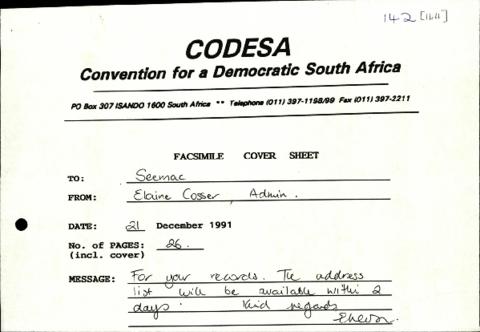 142 [1611]
CODESA
Convention for a Democratic South Africa
PO Box 307 ISANDO 1600 South Africa ** Telephone (011) 397-1198/99 Fax (011) 397-2211
FACSIMILE COVER SHEET
TO: Seemac
FROM: Elaine Cosser, Admin.
DATE: 21 December 1991
No. of PAGES: 26.
(incl. cover)
MESSAGE: For your records. The address
list will be available within 2
days. Kind regards